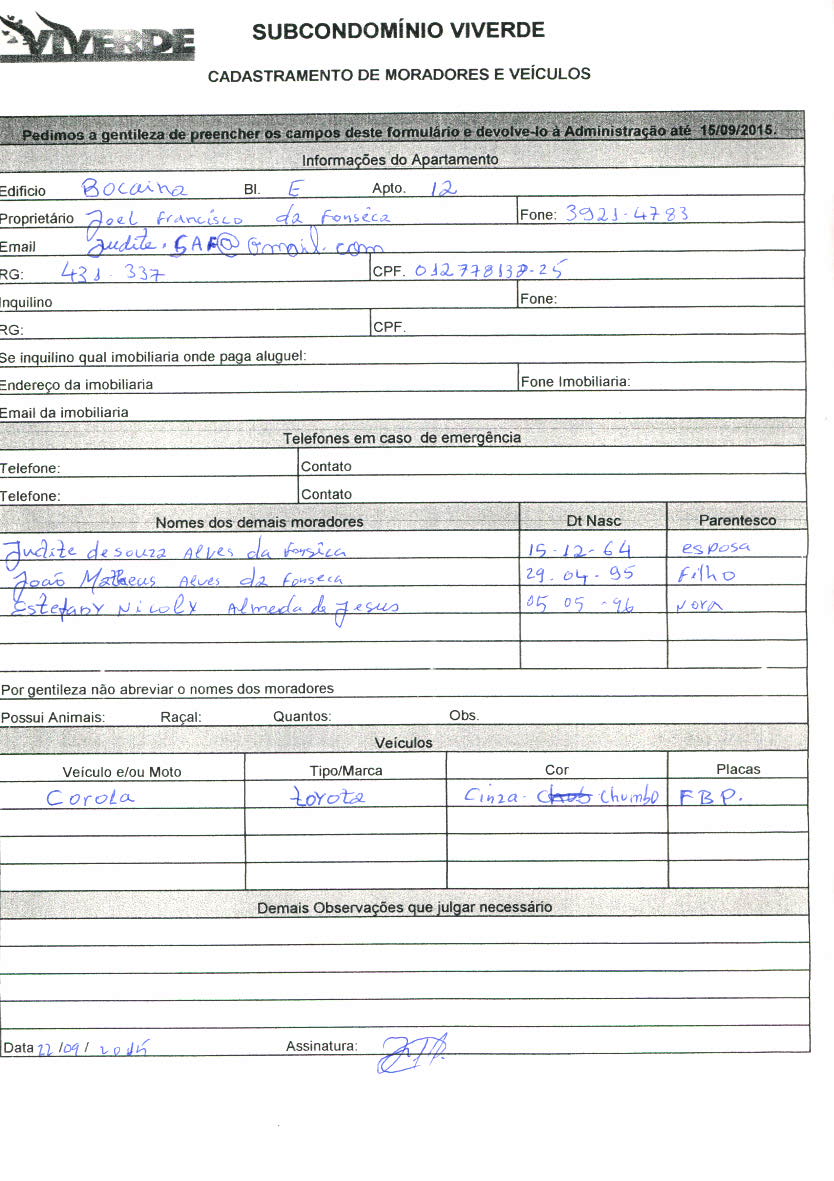 VIVERDE
SUBCONDOMÍNIO VIVERDE
CADASTRAMENTO DE MORADORES E VEÍCULOS
Pedimos a gentileza de preencher os campos deste formulário e devolve-lo à Administração até 15/09/2015.
Informações do Apartamento
Edificio Bocaina Bl. E Apto. 12
Proprietário Joel Francisco da Fonseca Fone: 3921-4783
Email Judite.SAF@Gmail.com
RG: 431.337 CPF. 012778138-25
Inquilino Fone:
RG: CPF.
Se inquilino qual imobiliaria onde paga aluguel:
Endereço da imobiliaria Fone Imobiliaria:
Email da imobiliaria
Telefones em caso de emergência
Telefone: Contato
Telefone: Contato
Nomes dos demais moradores Dt Nasc Parentesco
Judite de souza Alves da Fonseca 15-12-64 esposa
João Matheus Alves da Fonseca 29.04-95 Filho
Estefany Nicoly Almeda de Jesus 05 05-96 Nora
Por gentileza não abreviar o nomes dos moradores
Possui Animais: Raçal: Quantos: Obs.
Veículos
Veículo e/ou Moto Tipo/Marca Cor Placas
Corola toyota Cinza- Chumbo FBP.
Demais Observações que julgar necessário
Data 22/09/2015 Assinatura: